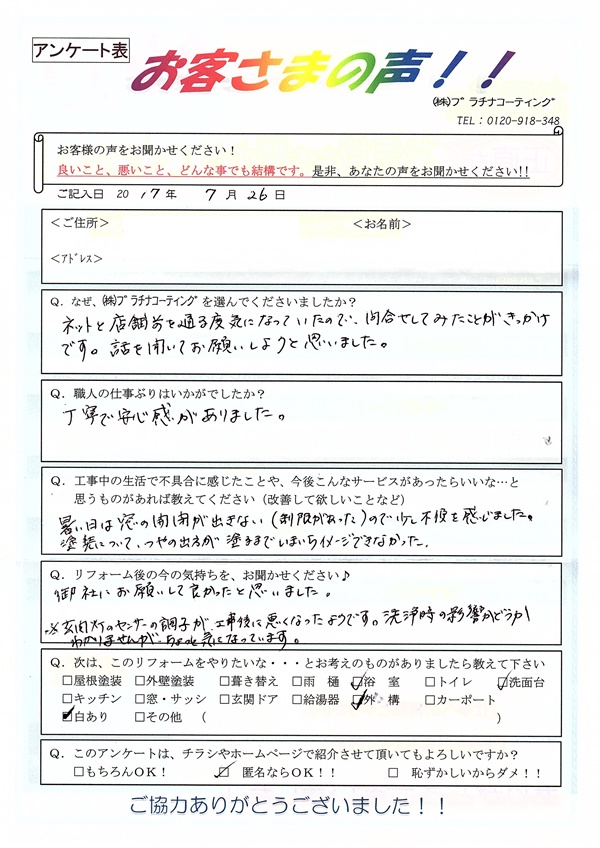 アンケート表
お客さまの声！！
㈱プラチナコーティング
TEL：0120-918-348
お客様の声をお聞かせください！
良いこと、悪いこと、どんな事でも結構です。是非、あなたの声をお聞かせください!!
ご記入日 2017年 7月 26日
＜ご住所＞ ＜お名前＞
＜アドレス＞
Q．なぜ、㈱プラチナコーティングを選んでくださいましたか？
ネットと店舗前を通る度気になっていたので、問合せしてみたことがきっかけ
です。話を聞いてお願いしようと思いました。
Q．職人の仕事ぶりはいかがでしたか？
丁寧で安心感がありました。
Q．工事中の生活で不具合に感じたことや、今後こんなサービスがあったらいいな…と
思うものがあれば教えてください（改善して欲しいことなど）
暑い日は窓の開閉が出きない（制限があった）ので少し不便を感じました。
塗装について、つやの出方が塗るまでいまいちイメージできなかった.
Q．リフォーム後の今の気持ちを、お聞かせください♪
御社にお願いして良かったと思いました。
※玄関灯のセンサーの調子が、工事後に悪くなったようです。洗浄時の影響かどうか
わかりませんが、ちょっと気になっています。
Q．次は、このリフォームをやりたいな・・・とお考えのものがありましたら教えて下さい
□屋根塗装 □外壁塗装 □葺き替え □雨 樋 ☑浴 室 □トイレ ☑洗面台
□キッチン □窓・サッシ □玄関ドア □給湯器 ☑外 構 □カーポート
☑白あり □その他 （ ）
Q．このアンケートは、チラシやホームページで紹介させて頂いてもよろしいですか？
□もちろんOK！ ☑ 匿名ならOK！！ □ 恥ずかしいからダメ！！
ご協力ありがとうございました！！